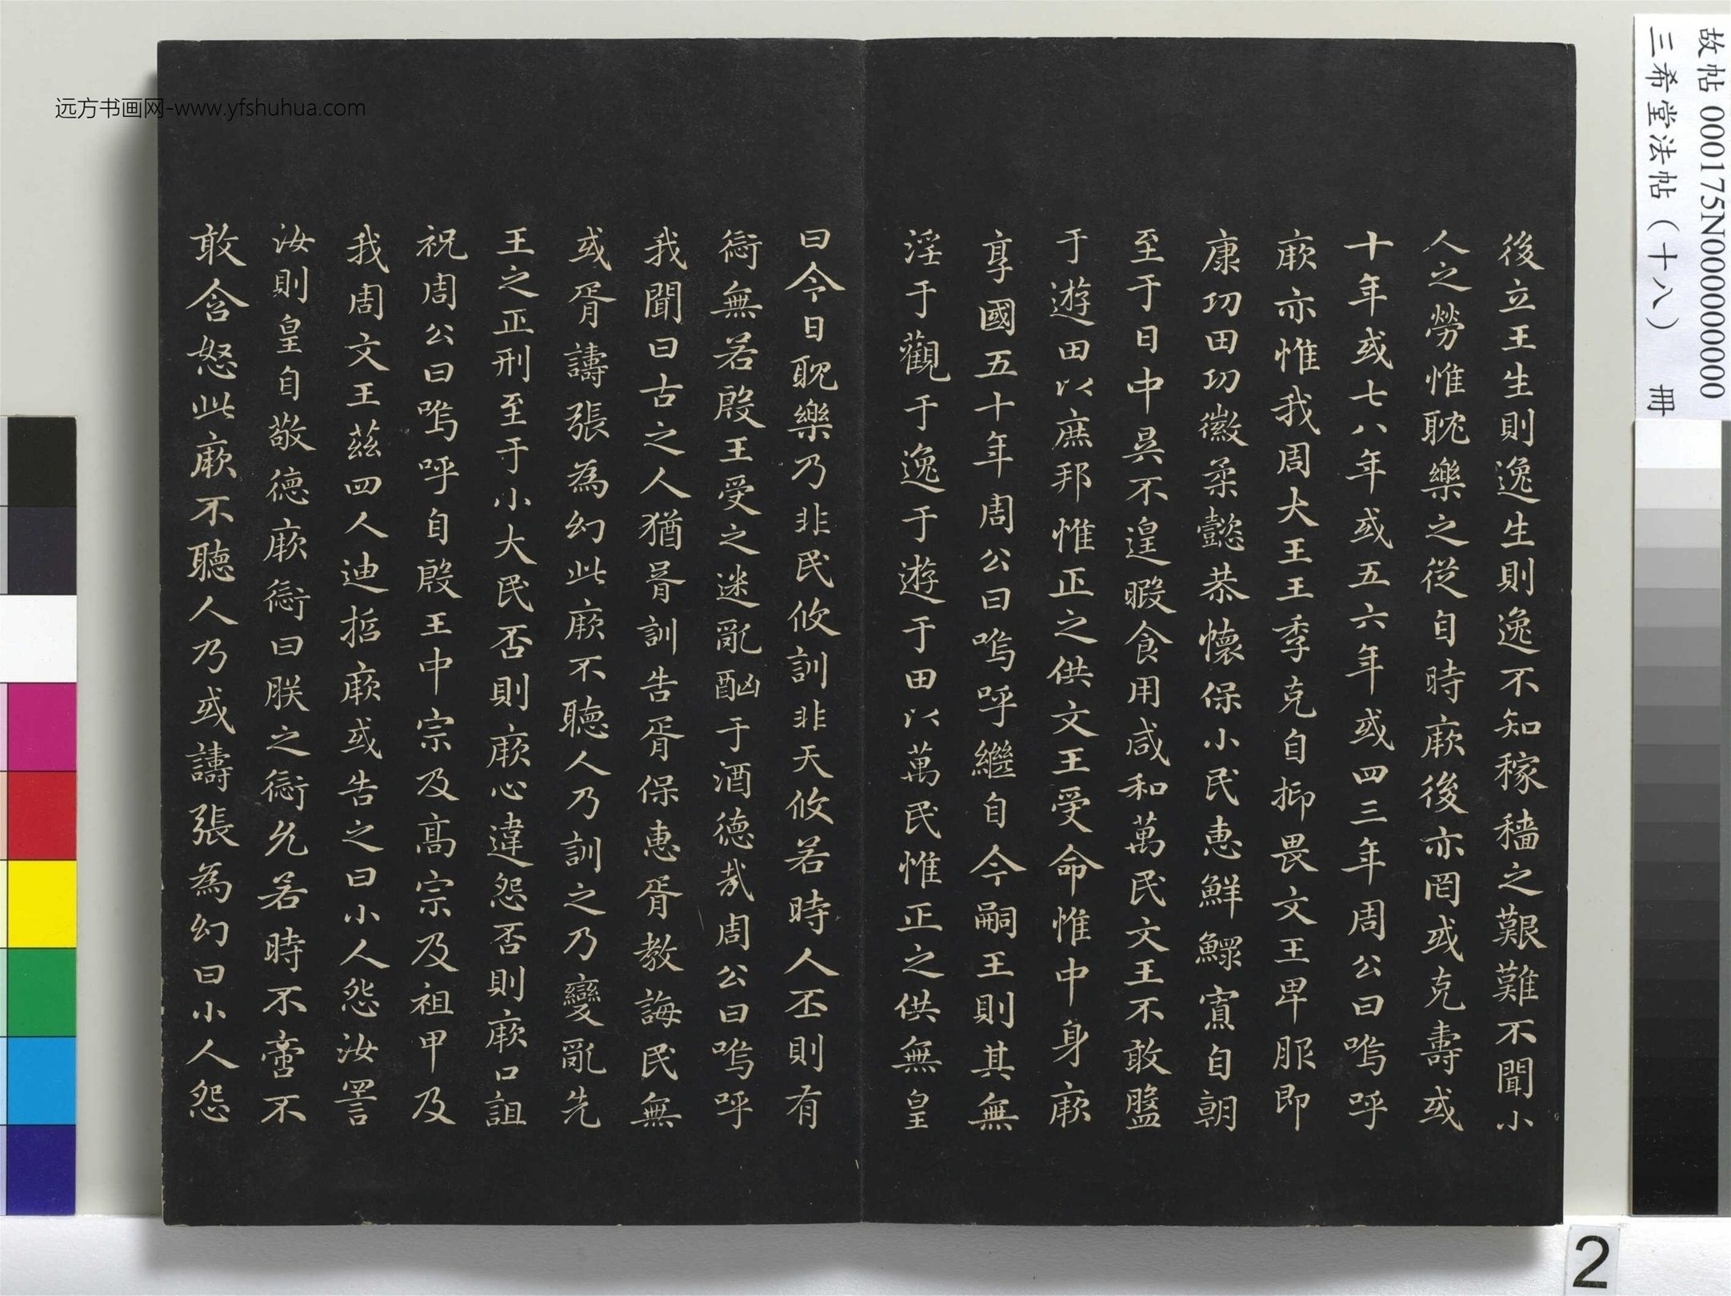 後立王生則逸生則逸不知稼穡之艱難不聞小
人之勞惟耽樂之從自時厥後亦罔或克壽或
十年或七八年或五六年或四三年周公曰嗚呼
厥亦惟我周大王王季克自抑畏文王卑服即
康功田功徽柔懿恭懷保小民惠鮮鰥寡自朝
至于日中昃不遑暇食用咸和萬民文王不敢盤
于遊田以庶邦惟正之供文王受命惟中身厥
享國五十年周公曰嗚呼繼自今嗣王則其無
淫于觀于逸于遊于田以萬民惟正之供無皇
曰今日耽樂乃非民攸訓非天攸若時人丕則有
愆無若殷王受之迷亂酗于酒德哉周公曰嗚呼
我聞曰古之人猶胥訓告胥保惠胥教誨民無
或胥譸張為幻此厥不聽人乃訓之乃變亂先
王之正刑至于小大民否則厥心違怨否則厥口詛
祝周公曰嗚呼自殷王中宗及高宗及祖甲及
我周文王茲四人迪哲厥或告之曰小人怨汝詈
汝則皇自敬德厥愆曰朕之愆允若時不啻不
敢含怒此厥不聽人乃或譸張為幻曰小人怨
故帖 000175N000000000
三希堂法帖（十八） 冊
远方书画网-www.yfshuhua.com
2